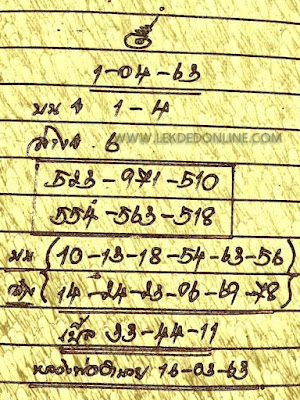 1-04-63
บน 4 1-4
ล่าง 4 6
WWW.LEKDEDONLINE.COM
523-971-510
554-563-518
บน {10-13-18-54-63-56}
ล่าง {14-24-23-06-69-78}
เบิ้ล 33-44-11
16-03-63